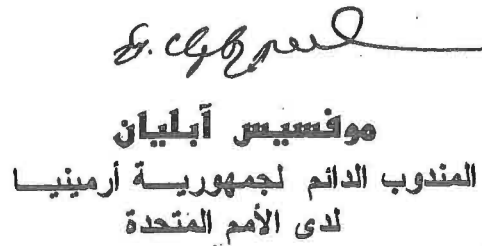 موفسيس آبليان
المندوب الدائم لجمهورية أرمينيا
لدى الأمم المتحدة